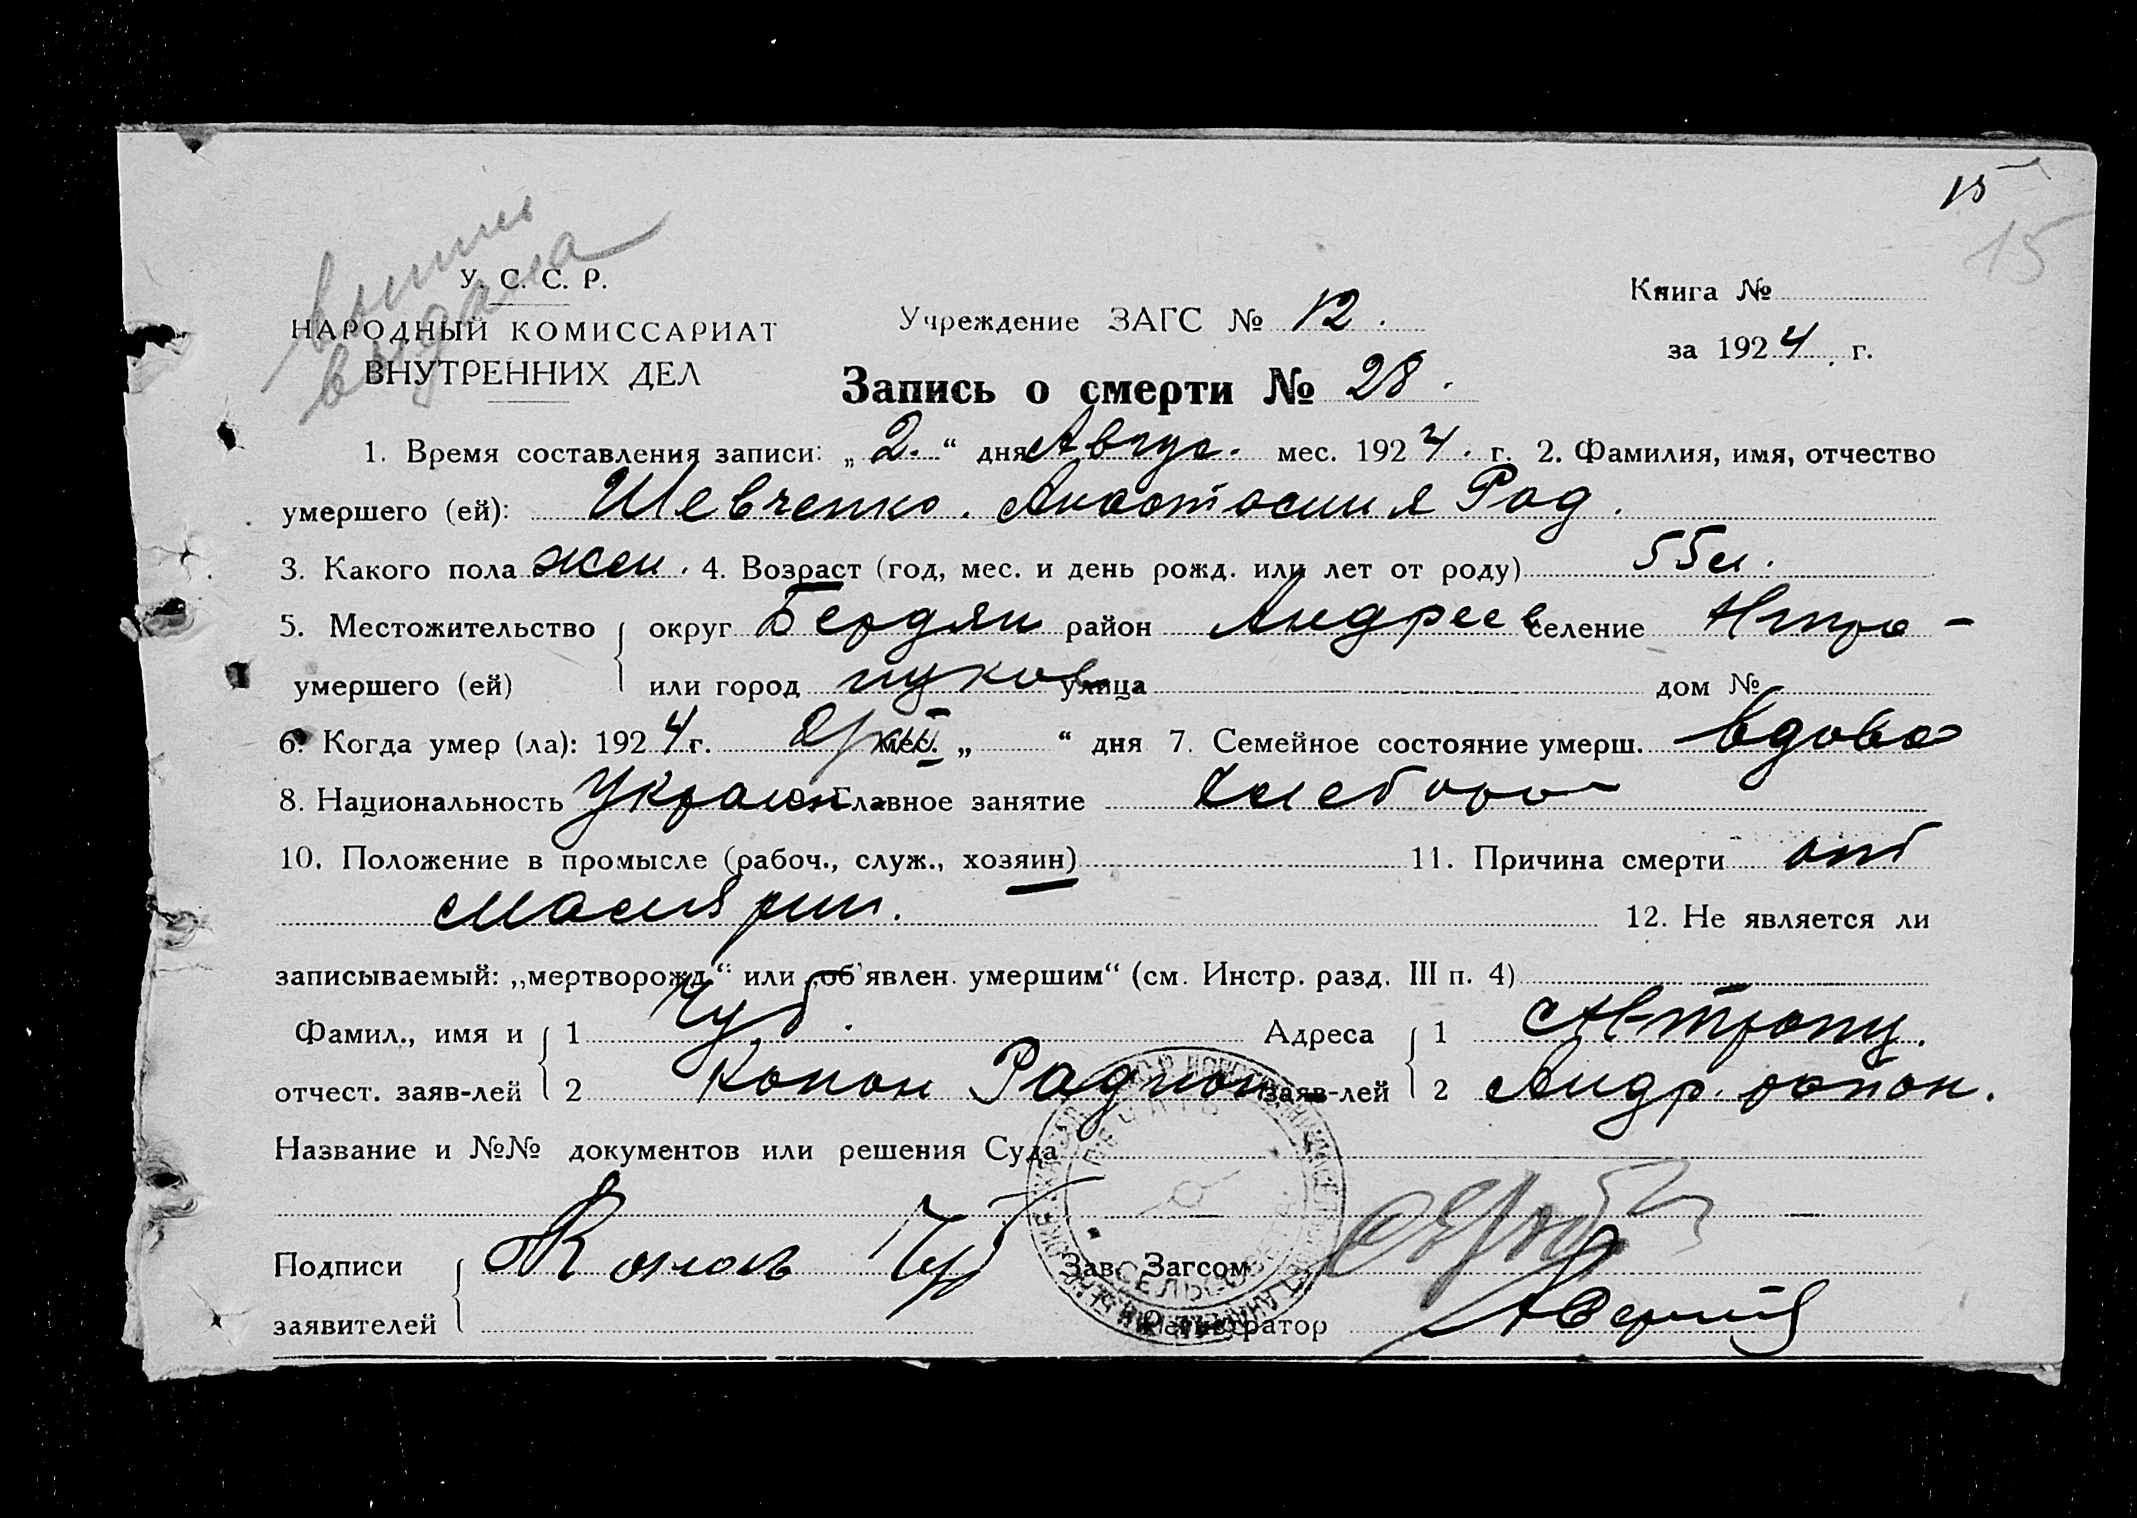 15
15
У. С. С. Р.
НАРОДНЫЙ КОМИССАРИАТ
ВНУТРЕННИХ ДЕЛ
выпись
выдана
Учреждение ЗАГС № 12.
Книга №
за 1924 г.
Запись о смерти № 28.
1. Время составления записи: „2.“ дня Авгус. мес. 1924. г. 2. Фамилия, имя, отчество
умершего (ей): Шевченко. Анастасия Рад.
3. Какого пола жен. 4. Возраст (год, мес. и день рожд. или лет от роду) 55 л.
5. Местожительство округ Бердян район Андреев селение
умершего (ей) или город улица дом №
6. Когда умер (ла): 1924 г. мес. „ “ дня 7. Семейное состояние умерш. вдова
8. Национальность Украин 9. Главное занятие хлебороб
10. Положение в промысле (рабоч., служ., хозяин) 11. Причина смерти от
малярии. 12. Не является ли
записываемый: „мертворожд“ или „об'явлен. умершим“ (см. Инстр. разд. III п. 4)
Фамил., имя и 1 Чуб. Адреса 1
отчест. заяв-лей 2 Конон Радион заяв-лей 2 Андр. район.
Название и №№ документов или решения Суда
Подписи Конон Чуб Зав. Загсом
заявителей Регистратор
СЕЛЬСОВЕТ